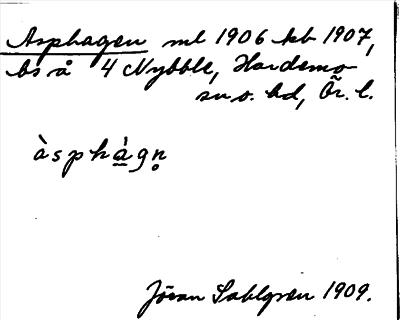 Asphagen ml 1906 kb 1907,
bs å 4 Nybble, Hardemo
sn o. hd, Ör. l.
àsphàgn̥
Jöran Sahlgren 1909.